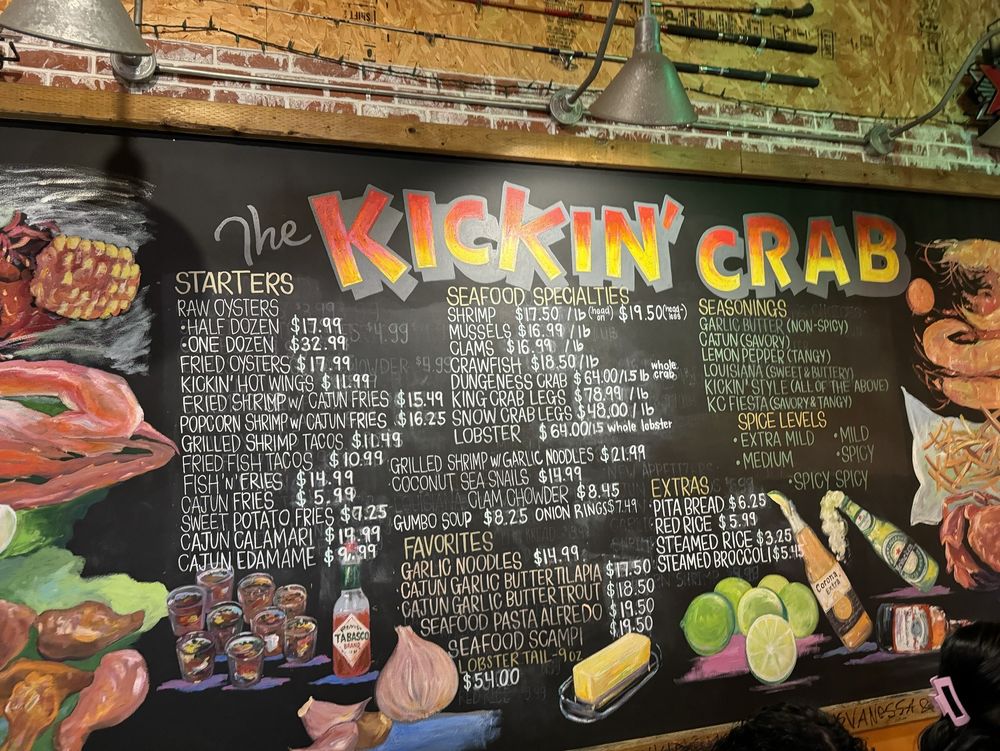 The KICKIN' CRAB
STARTERS
RAW OYSTERS
•HALF DOZEN $17.99
•ONE DOZEN $32.99
FRIED OYSTERS $17.99
KICKIN' HOT WINGS $11.99
FRIED SHRIMP W/ CAJUN FRIES $15.49
POPCORN SHRIMP W/ CAJUN FRIES $16.25
GRILLED SHRIMP TACOS $11.49
FRIED FISH TACOS $10.99
FISH 'N' FRIES $14.99
CAJUN FRIES $5.99
SWEET POTATO FRIES $7.25
CAJUN CALAMARI
CAJUN EDAMAME
SEAFOOD SPECIALTIES
SHRIMP $17.50 /lb (head on) $19.50 (head-less)
MUSSELS $16.99 /lb
CLAMS $16.99 /lb
CRAWFISH $18.50/lb
DUNGENESS CRAB $64.00/1.5 lb whole crab
KING CRAB LEGS $78.99 /lb
SNOW CRAB LEGS $48.00/lb
LOBSTER $64.00/1.5 whole lobster
GRILLED SHRIMP W/ GARLIC NOODLES $21.99
COCONUT SEA SNAILS $14.99
CLAM CHOWDER $8.45
GUMBO SOUP $8.25 ONION RINGS $7.49
FAVORITES
GARLIC NOODLES $14.99
CAJUN GARLIC BUTTER TILAPIA $17.50
CAJUN GARLIC BUTTER TROUT $18.50
SEAFOOD PASTA ALFREDO $19.50
SEAFOOD SCAMPI $19.50
LOBSTER TAIL - 9oz
$54.00
SEASONINGS
GARLIC BUTTER (NON-SPICY)
CAJUN (SAVORY)
LEMON PEPPER (TANGY)
LOUISIANA (SWEET & BUTTERY)
KICKIN' STYLE (ALL OF THE ABOVE)
KC FIESTA (SAVORY & TANGY)
SPICE LEVELS
•EXTRA MILD •MILD
•MEDIUM •SPICY
•SPICY SPICY
EXTRAS
PITA BREAD $6.25
RED RICE $5.99
STEAMED RICE $3.25
STEAMED BROCCOLI $5.45
TABASCO
BRAND
Corona
Extra
Heineken
VANESSA